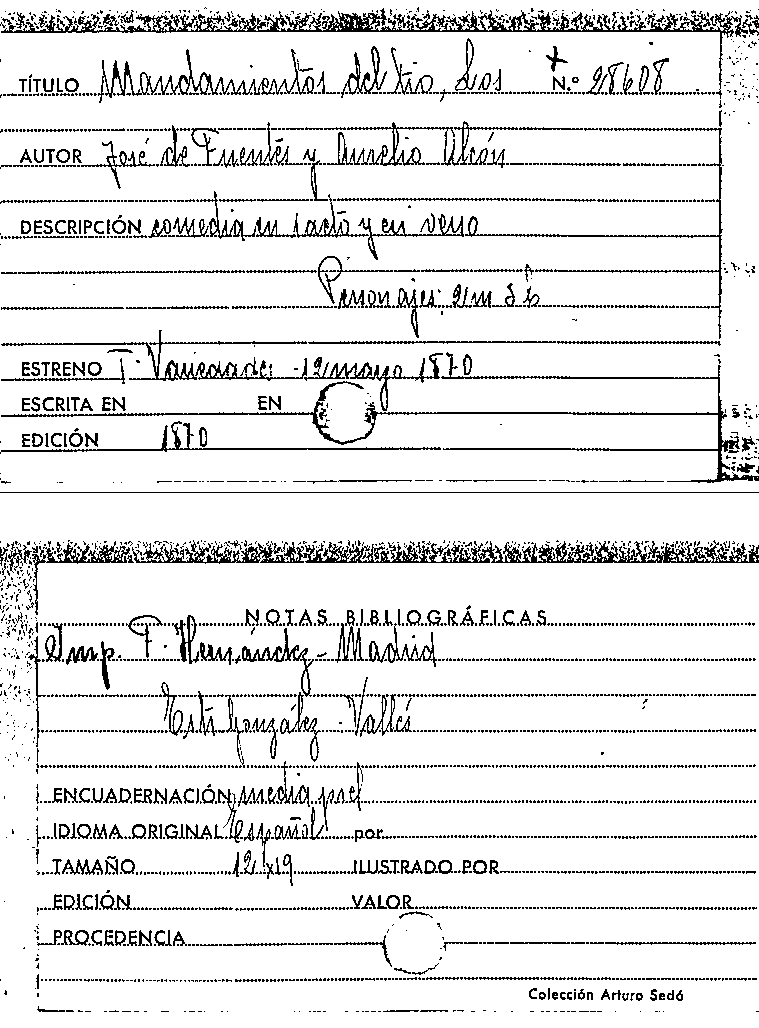 TÍTULO Mandamientos del tio, Los N.º 28608
AUTOR José de Fuentes y Aurelio Alcón
DESCRIPCIÓN comedia en 1 acto y en verso
Personajes: 2/m
ESTRENO T. Variedades -12/mayo 1870
ESCRITA EN EN
EDICIÓN 1870
NOTAS BIBLIOGRÁFICAS
Imp. F. Hernández - Madrid
González - Vallés
ENCUADERNACIÓN media piel
IDIOMA ORIGINAL Español por
TAMAÑO 12 x 19 ILUSTRADO POR
EDICIÓN VALOR
PROCEDENCIA
Colección Arturo Sedó